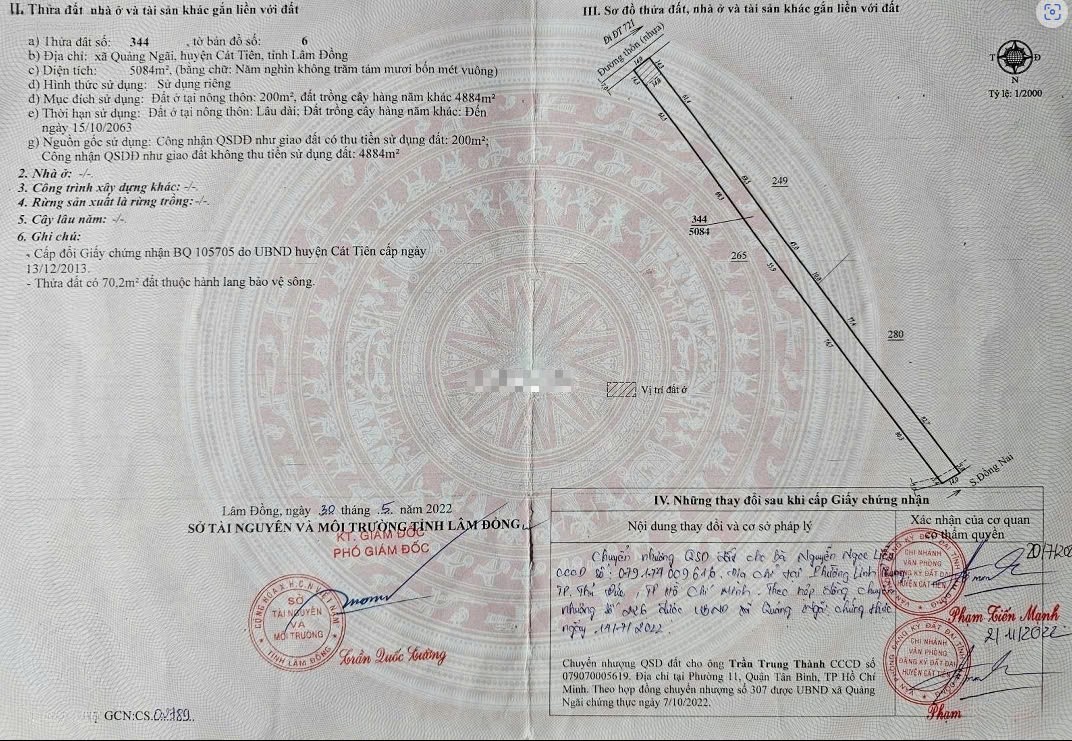 II. Thửa đất, nhà ở và tài sản khác gắn liền với đất
a) Thửa đất số: 344 , tờ bản đồ số: 6
b) Địa chỉ: xã Quảng Ngãi, huyện Cát Tiên, tỉnh Lâm Đồng
c) Diện tích: 5084m², (bằng chữ: Năm nghìn không trăm tám mươi bốn mét vuông)
d) Hình thức sử dụng: Sử dụng riêng
đ) Mục đích sử dụng: Đất ở tại nông thôn: 200m², đất trồng cây hàng năm khác 4884m²
e) Thời hạn sử dụng: Đất ở tại nông thôn: Lâu dài; Đất trồng cây hàng năm khác: Đến
ngày 15/10/2063
g) Nguồn gốc sử dụng: Công nhận QSDĐ như giao đất có thu tiền sử dụng đất: 200m²;
Công nhận QSDĐ như giao đất không thu tiền sử dụng đất: 4884m²
2. Nhà ở: -/-
3. Công trình xây dựng khác: -/-
4. Rừng sản xuất là rừng trồng: -/-
5. Cây lâu năm: -/-
6. Ghi chú:
- Cấp đổi Giấy chứng nhận BQ 105705 do UBND huyện Cát Tiên cấp ngày
13/12/2013.
- Thửa đất có 70,2m² đất thuộc hành lang bảo vệ sông.
Lâm Đồng, ngày 30 tháng 5 năm 2022
SỞ TÀI NGUYÊN VÀ MÔI TRƯỜNG TỈNH LÂM ĐỒNG
KT. GIÁM ĐỐC
PHÓ GIÁM ĐỐC
SỞ
TÀI NGUYÊN
VÀ
MÔI TRƯỜNG
TỈNH LÂM ĐỒNG
Trần Quốc Cường
GCN:CS.02789
III. Sơ đồ thửa đất, nhà ở và tài sản khác gắn liền với đất
Đi ĐT 721
Đường thôn (nhựa)
T Đ
N
Tỷ lệ: 1/2000
249
344
5084
265
280
Vị trí đất ở
S.Đồng Nai
IV. Những thay đổi sau khi cấp Giấy chứng nhận
Nội dung thay đổi và cơ sở pháp lý
Xác nhận của cơ quan
có thẩm quyền
Chuyển nhượng QSD đất cho Bà Nguyễn Ngọc
CCCD số: Địa chỉ tại Phường Linh
TP. Thủ Đức, TP Hồ Chí Minh. Theo hợp đồng chuyển
nhượng số 226 được UBND xã Quảng Ngãi chứng thực
ngày 19/7/2022.
CHI NHÁNH
VĂN PHÒNG
ĐĂNG KÝ ĐẤT ĐAI
HUYỆN CÁT TIÊN
Phạm Tiến Mạnh
2/11/2022
Chuyển nhượng QSD đất cho ông Trần Trung Thành CCCD số
079070005619. Địa chỉ tại Phường 11, Quận Tân Bình, TP Hồ Chí
Minh. Theo hợp đồng chuyển nhượng số 307 được UBND xã Quảng
Ngãi chứng thực ngày 7/10/2022.
CHI NHÁNH
VĂN PHÒNG
ĐĂNG KÝ ĐẤT ĐAI
HUYỆN CÁT TIÊN
Phạm